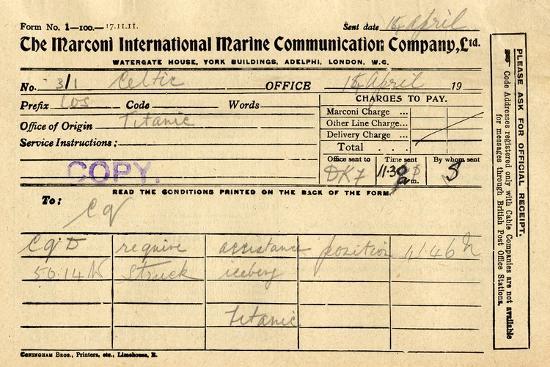 Form No. 1—100.—17.11.11. Sent date 15 April
The Marconi International Marine Communication Company, Ltd.
WATERGATE HOUSE, YORK BUILDINGS, ADELPHI, LONDON, W.C.
No. 3/1 Celtic OFFICE 15 April 19
Prefix Code Words
CHARGES TO PAY.
Marconi Charge ...
Office of Origin Titanic
Other Line Charge...
Service Instructions:
Delivery Charge ...
Total
COPY.
Office sent to Time sent By whom sent
DKF 11-30 m. S
READ THE CONDITIONS PRINTED ON THE BACK OF THE FORM.
To: CQ
CQD require assistance position 41.46 N
50.14 W Struck iceberg
Titanic
CONINGHAM BROS., Printers, etc., Limehouse, E.
PLEASE ASK FOR OFFICIAL RECEIPT.
Code Addresses registered only with Cable Companies are not available
for messages through British Post Office Stations.